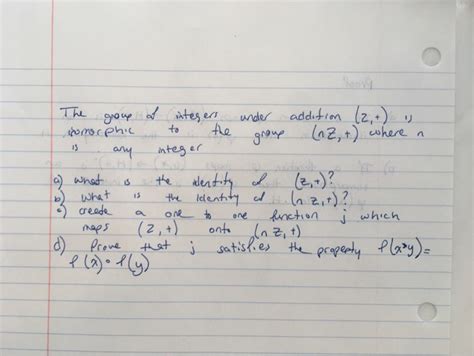 The group of integers under addition (Z,+) is
isomorphic to the group (nZ,+) where n
is any integer
a) what is the identity of (Z,+)?
b) what is the identity of (nZ,+)?
c) create a one to one function j which
maps (Z,+) onto (nZ,+)
d) Prove that j satisfies the property f(x*y)=
f(x)∘f(y)